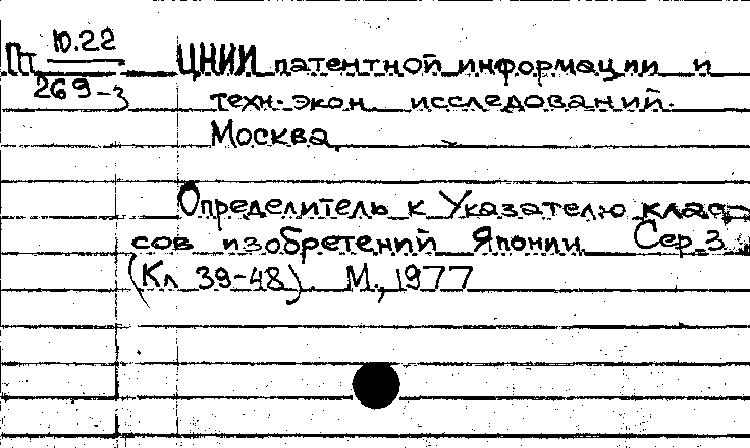 Пт Ю.22 ЦНИИ патентной информации и
269-3 техн. экон. исследований.
Москва.
Определитель к Указателю клас-
сов изобретений Японии. Сер. 3
(Кл 39-48). М., 1977